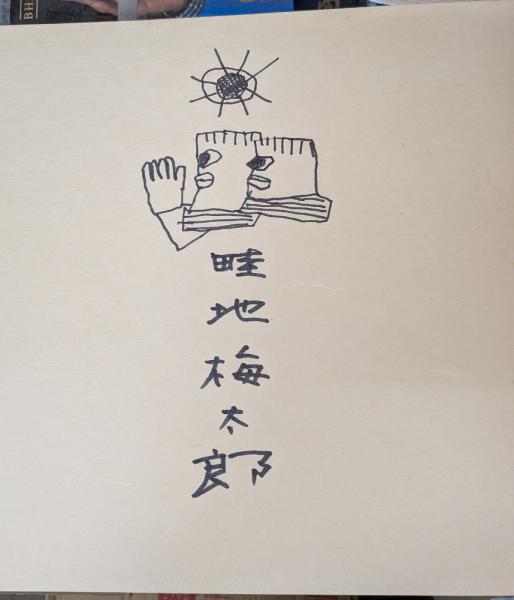 畦地梅太郎
BH